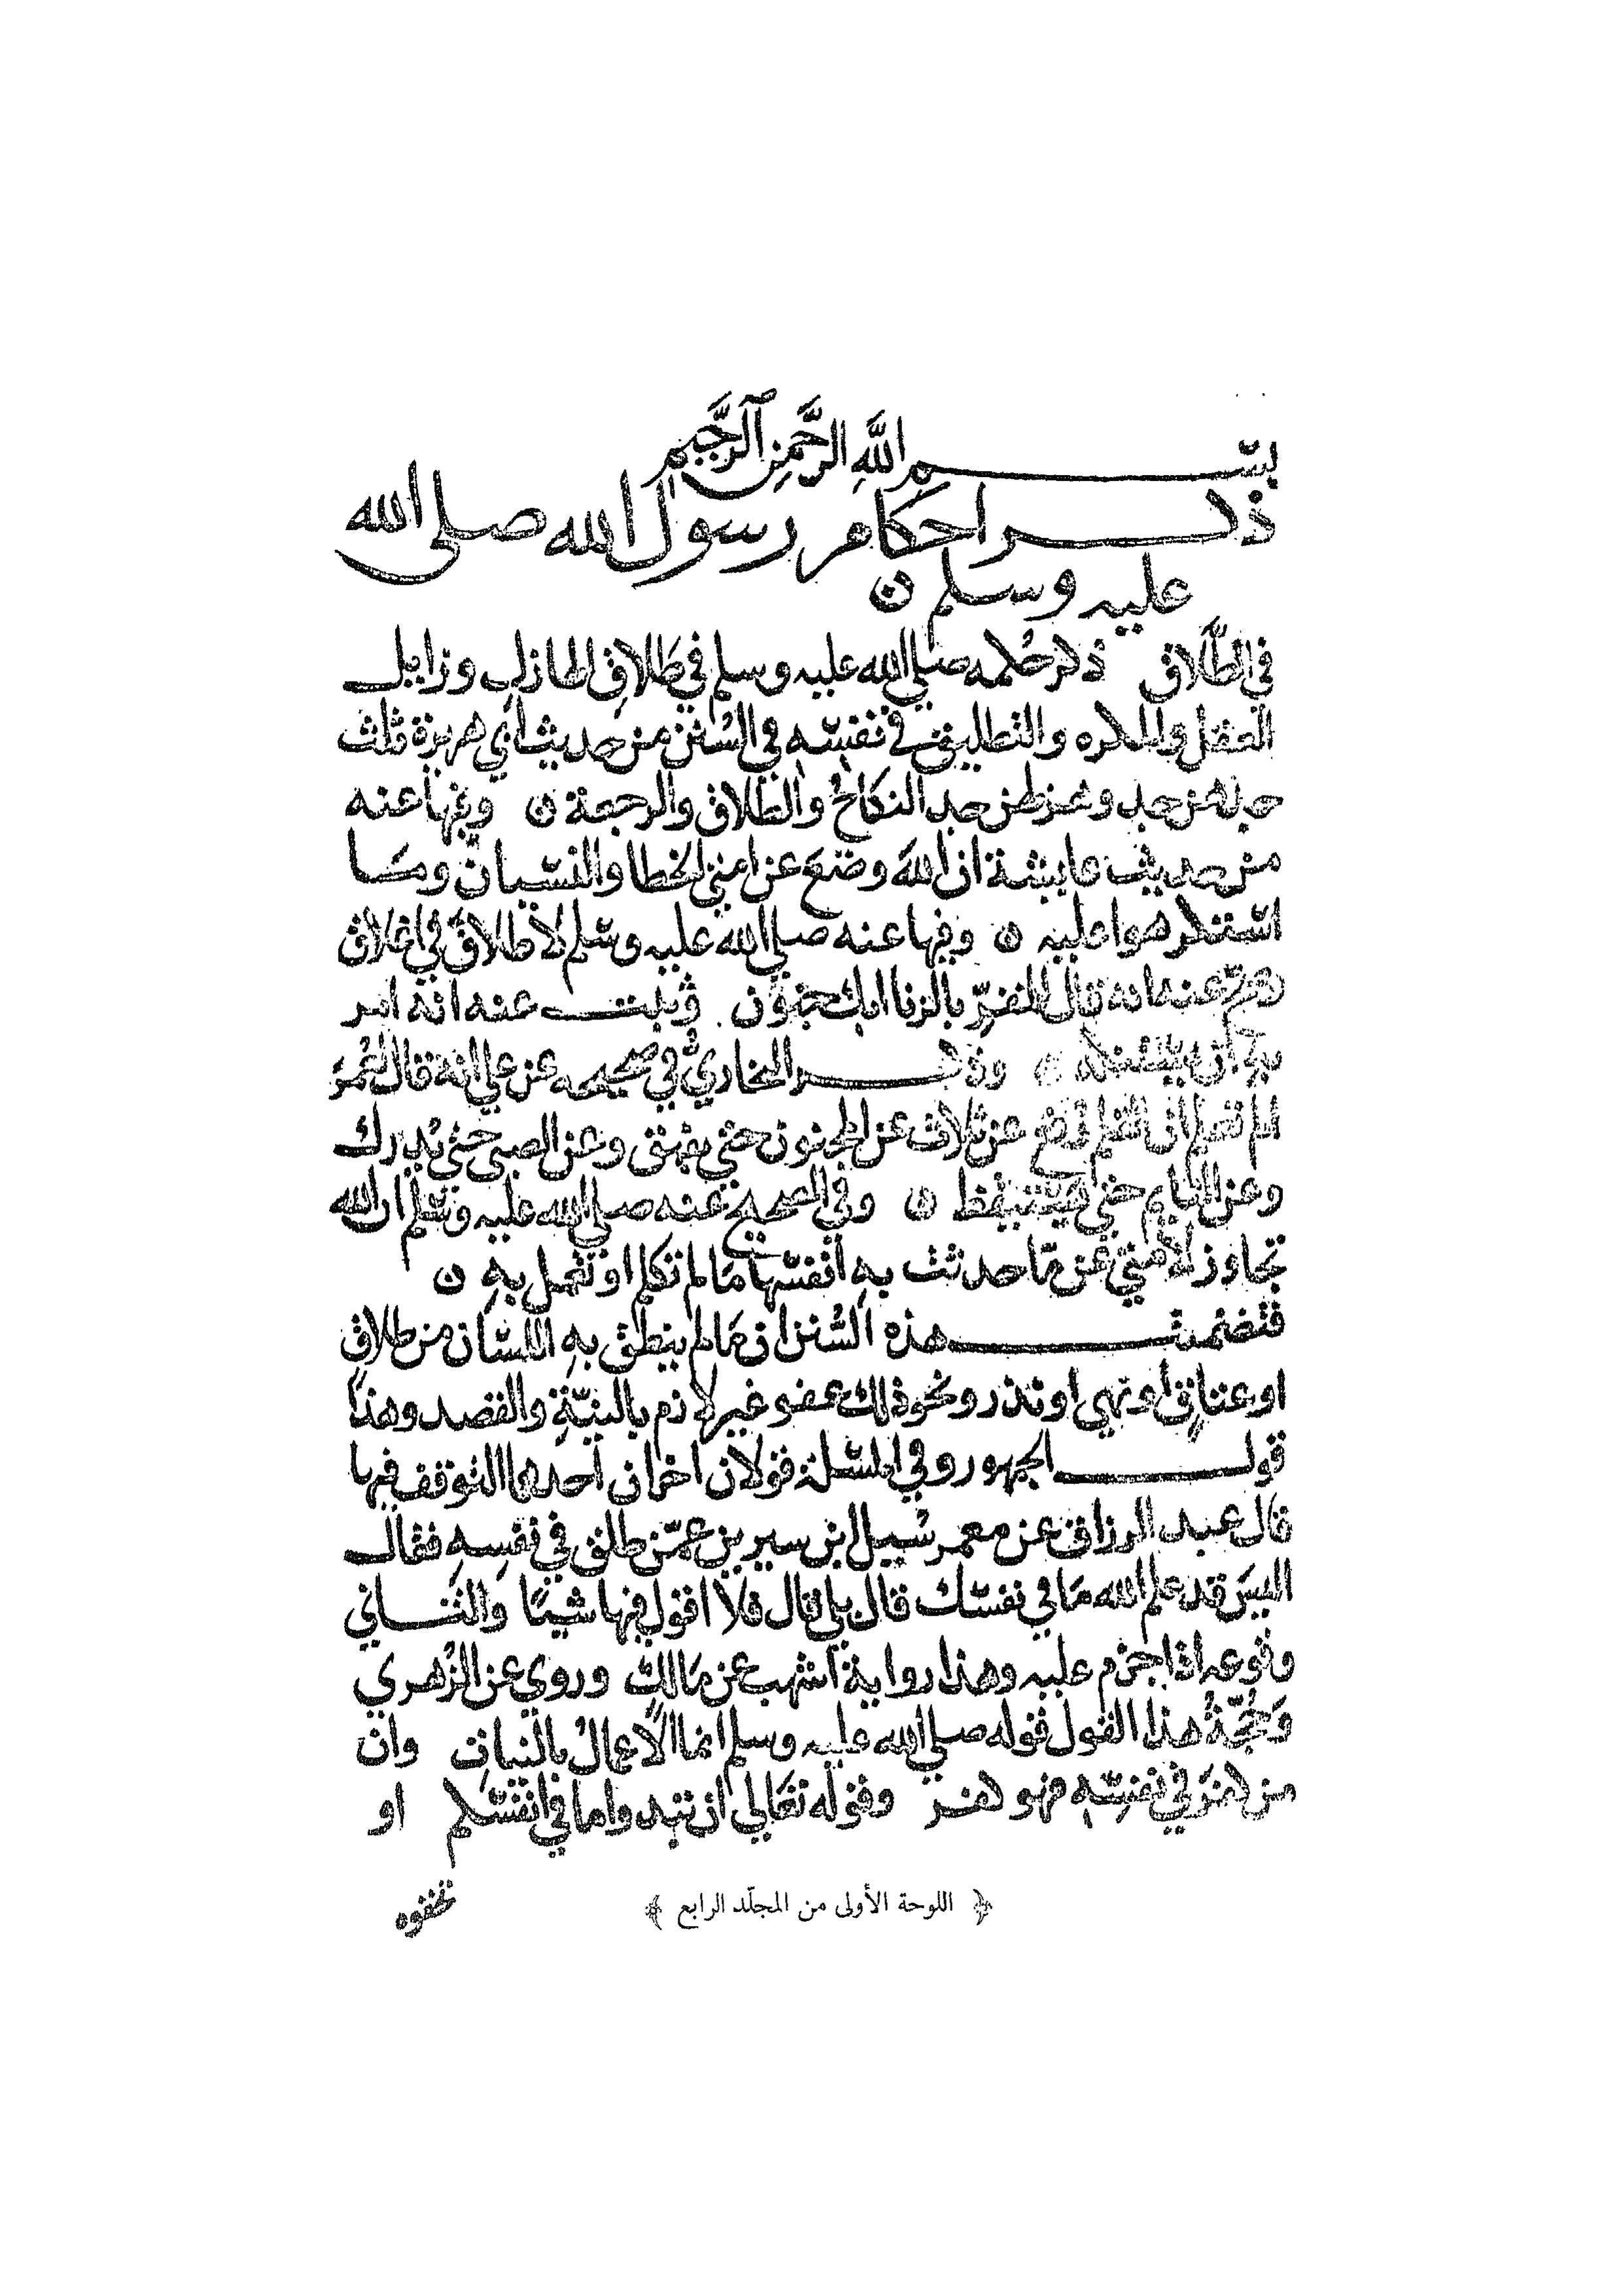 بسم اللَّهِ الرَّحْمنِ الرَّحِيمِ
ذكر احكام رسول الله صلى الله
عليه وسلم
في الطَّلاق ذكر حُكمه صلى الله عليه وسلم في طَلاقِ الهازلِ وزايل
العقل والمكره والتطليق في نفسه في السُنن من حديث أبي هريرة ثلث
جدهن جد وهزلهن جد النكاحُ والطلاق والرجعة وفيها عنه
من حديث عايشة ان اللهَ وضعَ عن امتي الخطا والنسيان وما
استكرهوا عليه وفيها عنه صلى الله عليه وسلم لا طلاقَ في اغلاق
وصح عنه انه قال للمقرِّ بالزنا ابك جنون وثبت عنه انه امر
به أن يستنكه وذكر البخاريُّ في صحيحه عن علي انه قال لعُمر
الم تعلم ان القلم رفع عن ثلاث عن المجنون حتى يفيق وعن الصبي حتى يُدرك
وعن النايم حتى يستيقظ وفي الصحيح عنه صلى الله عليه وسلم ان الله
تجاوز لأمتي عن مّا حدثت بهِ أنفسها مَا لم تكلم او تعمل بهِ
فتضمنت هذه السُّنن ان مَا لم ينطق بهِ اللسَان من طلاقٍ
او عتاقٍ او يمين او نذر ونحو ذلك عفو غير لازم بالنيّةِ والقصد وهذا
قول الجمهور وفي المسئلة قولان اخران أحدهما التوقف فيها
قال عبد الرزاق عن معمر سُيل ابن سيرين عمّن طلق في نفسِهِ فقال
اليسَ قد علم الله مَا في نفسك قال بلى قال فلا اقول فيها شيئًا والثاني
وقوعه اذا جزم عليه وهذا رواية أشهب عن مَالكٍ وروي عن الزُهري
وَحُجّةُ هذا القول قوله صلى الله عليه وسلم انما الأعمالُ بالنياتِ وان
من كفرَ في نفسِهِ فهو كفر وقوله تعَالى ان تبدوا ما في انفسكم او
تخفوه
﴿ اللوحة الأولى من المجلّد الرابع ﴾